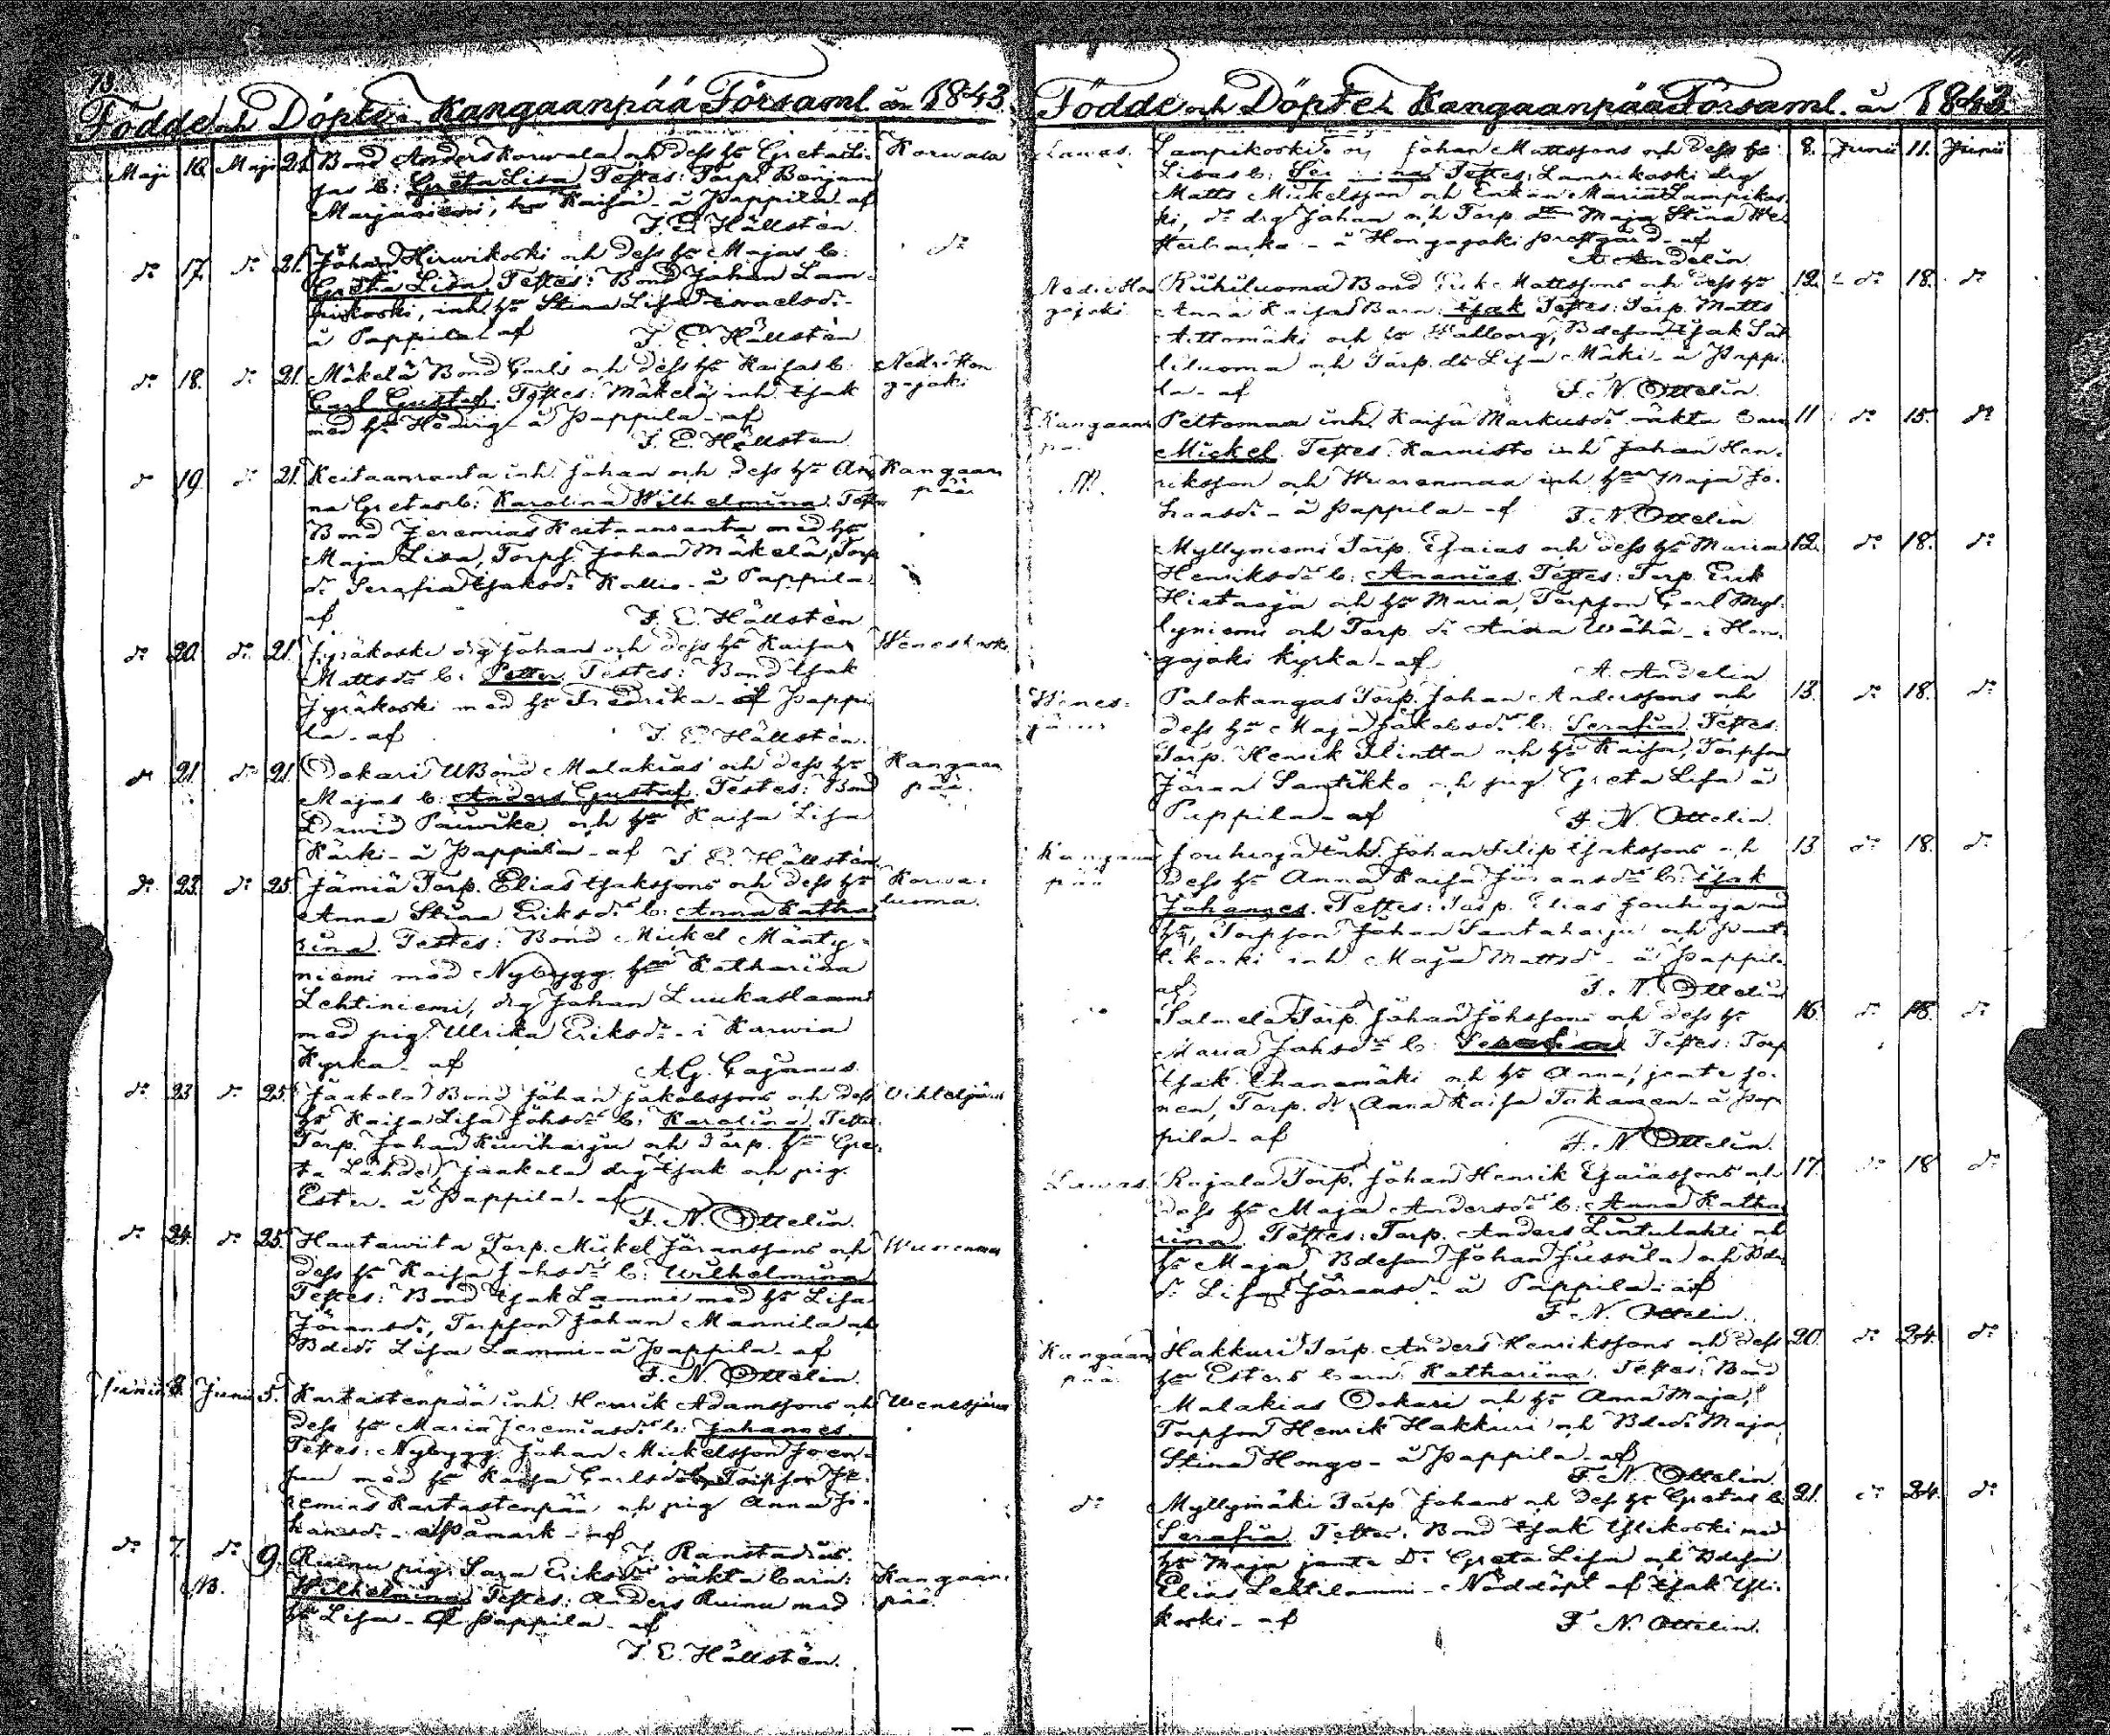 78.
Födde och Döpte i Kangaanpää Församl. år 1843.
Maji 16. Maji 21. Bond Anders Korwala och dess hu Greta Li- Korwala
sas b: Greta Lisa Testes: Torp. Benjam
Marjaniemi, hu Kaisa - å Pappila af
F. E. Hällstén.
do 17. do 21. Johan Hirwikoski och dess hu Majas b: do
Greta Lisa Testes: Bond Johan Lam-
pikoski, inh. hu Stina Lisa
å Pappila af F. E. Hällstén
do 18. do 21. Mäkelä Bond Carls och dess hu Kaisas b: Nedre Hon
Carl Gustaf. Testes: Mäkelä inh. Isak gojoki
med hu Hedvig å Pappila af
F. E. Hällstén
do 19. do 21. Keitaanranta inh. Johan och dess hu An Kangaan
na Gretas b: Karolina Wilhelmina. Test. pää
Bond Jeremias Keitaanranta med hu
Maja Lisa, Torps. Johan Mäkelä, Torp
dr Serafia Isaksdr Kallio - å Pappila
af F. E. Hällstén
do 20. do 21. Jyräkoski drg Johans och dess hu Kaisa Weneskoski
Mattsdr b: Petter Testes: Bond Isak
Jyräkoski med hu Fredrika - å Pappi
la - af F. E. Hällstén.
do 21. do 21. Oskari UBond Malakias och dess hu Kangaan
Majas b: Anders Gustaf. Testes: Bond pää.
David Päiwike och hu Kaisa Lisa
Kärki - å Pappila - af F. E. Hällstén
do 23. do 25. Jämiä Torp. Elias Isakssons och dess hu Karwia-
Anna Stina Eriksdr b: Anna Katha luoma.
rina. Testes: Bond Mickel Mänty-
niemi med Nybygg. hu Katharina
Lehtiniemi, drg Johan Luukaslammi
med pig. Ulrika Eriksdr - i Karwia
Kyrka - af A. G. Cajanus.
do 23 do 25. Jaakola Bond Johan Jakobssons och dess Vihteljärvi
hu Kaisa Lisa Johsdr b: Karolina. Testes:
Torp. Johan Kiwiharju och Torp. hu Gre-
ta Lähde, Jaakola drg Isak och pig.
Ester - å Pappila - af
F. N. Ottelin.
do 24. do 25. Hautawiita Torp. Mickel Göranssons och Wuorenmaa
dess hu Kaisa Johsdr b: Wilhelmina
Testes: Bond Isak Lammi med hu Lisa
Göransdr, Torpson Johan Mannila och
Bdedr Lisa Lammi - å Pappila - af
F. N. Ottelin.
Junii 3. Junii 5. Kartastenpää inh. Henrik Adamssons och Wenesjärvi
dess hu Maria Jeremiasdr b: Johannes
Testes: Nybygg. Johan Mickelsson Joen-
suu med hu Kaisa Carlsdr, Torpson Je-
remias Kartastenpää och pig Anna Jo-
hansdr - å Påmark - af
F. Ranstadius.
do 7. do 9. Ruinu pig. Sara Eriksdr oäkta barn: Kangaan-
NB. Wilhelmina Testes: Anders Ruinu med pää
hu Lisa - å Pappila - af
F. E. Hällstén.
Födde och Döpte i Kangaanpää Församl. år 1843.
Lawas. Lampikoski Johan Mattssons och dess hu 8. Junii 11. Junii
Lisas b: Testes: Lampikoski drg
Matts Mickelsson och Enkan Maria Lampikos-
ki, do drg Johan och Torp. dr Maja Stina We-
- å Hongojoki prestgård - af
A. Andelin.
Nedre Hon Riihiluoma Bond Erik Mattssons och dess hu 12. do 18. do
gojoki Anna Kaisas Barn: Isak Testes: Torp. Matts
Attomäki och hu Walborg, Bdeson Isak Sät
tiluoma och Torp. dr Lisa Mäki - å Pappi-
la - af F. N. Ottelin.
Kangaan Peltomaa inh. Kaisa Markusdr oäkta barn 11 do 15. do
pää Mickel. Testes: Kannisto inh Johan Hen-
NB. riksson och Wuorenmaa inh hu Maja Jo-
hansdr - å Pappila - af F. N. Ottelin
Myllyniemi Torp. Esaias och dess hu Maria 12. do 18. do
Henriksdr b: Ananias. Testes: Torp. Erik
Hietaoja och hu Maria, Torpson Carl Myl-
lyniemi och Torp. dr Anna Wähä - i Hon-
gojoki kyrka - af A. Andelin
Wenes- Palokangas Torp. Johan Anderssons och 13. do 18. do
järvi dess hu Maja Jakobsdr b: Serafia. Testes:
Torp. Henrik Flintta och hu Kaisa, Torpson
Göran Santikko och pig. Greta Lisa å
Pappila - af F. N. Ottelin.
Kangaan Jouhioja inh. Johan Filip Isakssons och 13. do 18. do
pää dess hu Anna Kaisa Göransdr b: Isak
Johannes. Testes: Torp. Elias Jouhioja med
hu, Torpson Johan Santaharju och
inh Maja Mattsdr - å Pappila
af F. N. Ottelin
do Salmela Torp. Johan Johssons och dess hu 16. do 18. do
Maria Johsdr b: Serafina Testes: Torp
Isak Ihanamäki och hu Anna, jemte Jo-
nen, Torp. dr Anna Kaisa Takanen - å Pap
pila - af F. N. Ottelin.
Lawas. Rajala Torp. Johan Henrik Esaiassons och 17. do 18 do
dess hu Maja Andersdr b: Anna Katha
rina. Testes: Torp. Anders Lintulahti och
hu Maja, Bdeson Johan Jussila och Bde
dr Lisa Göransdr - å Pappila - af
F. N. Ottelin.
Kangaan Hakkuri Torp. Anders Henrikssons och dess 20. do 24. do
pää hu Esters barn: Katharina. Testes: Bond
Malakias Oskari och hu Anna Maja,
Torpson Henrik Hakkuri och Bdedr Maja
Stina Hongo - å Pappila - af
F. N. Ottelin
do Myllymäki Torp. Johans och dess hu Gretas b: 21. do 24. do
Serafia. Testes: Bond Isak Ylikoski med
hu Maja jemte Dr Greta Lisa och Bdeson
Elias Lehtilammi - Nöddöpt af Isak Yli-
koski - af F. N. Ottelin.